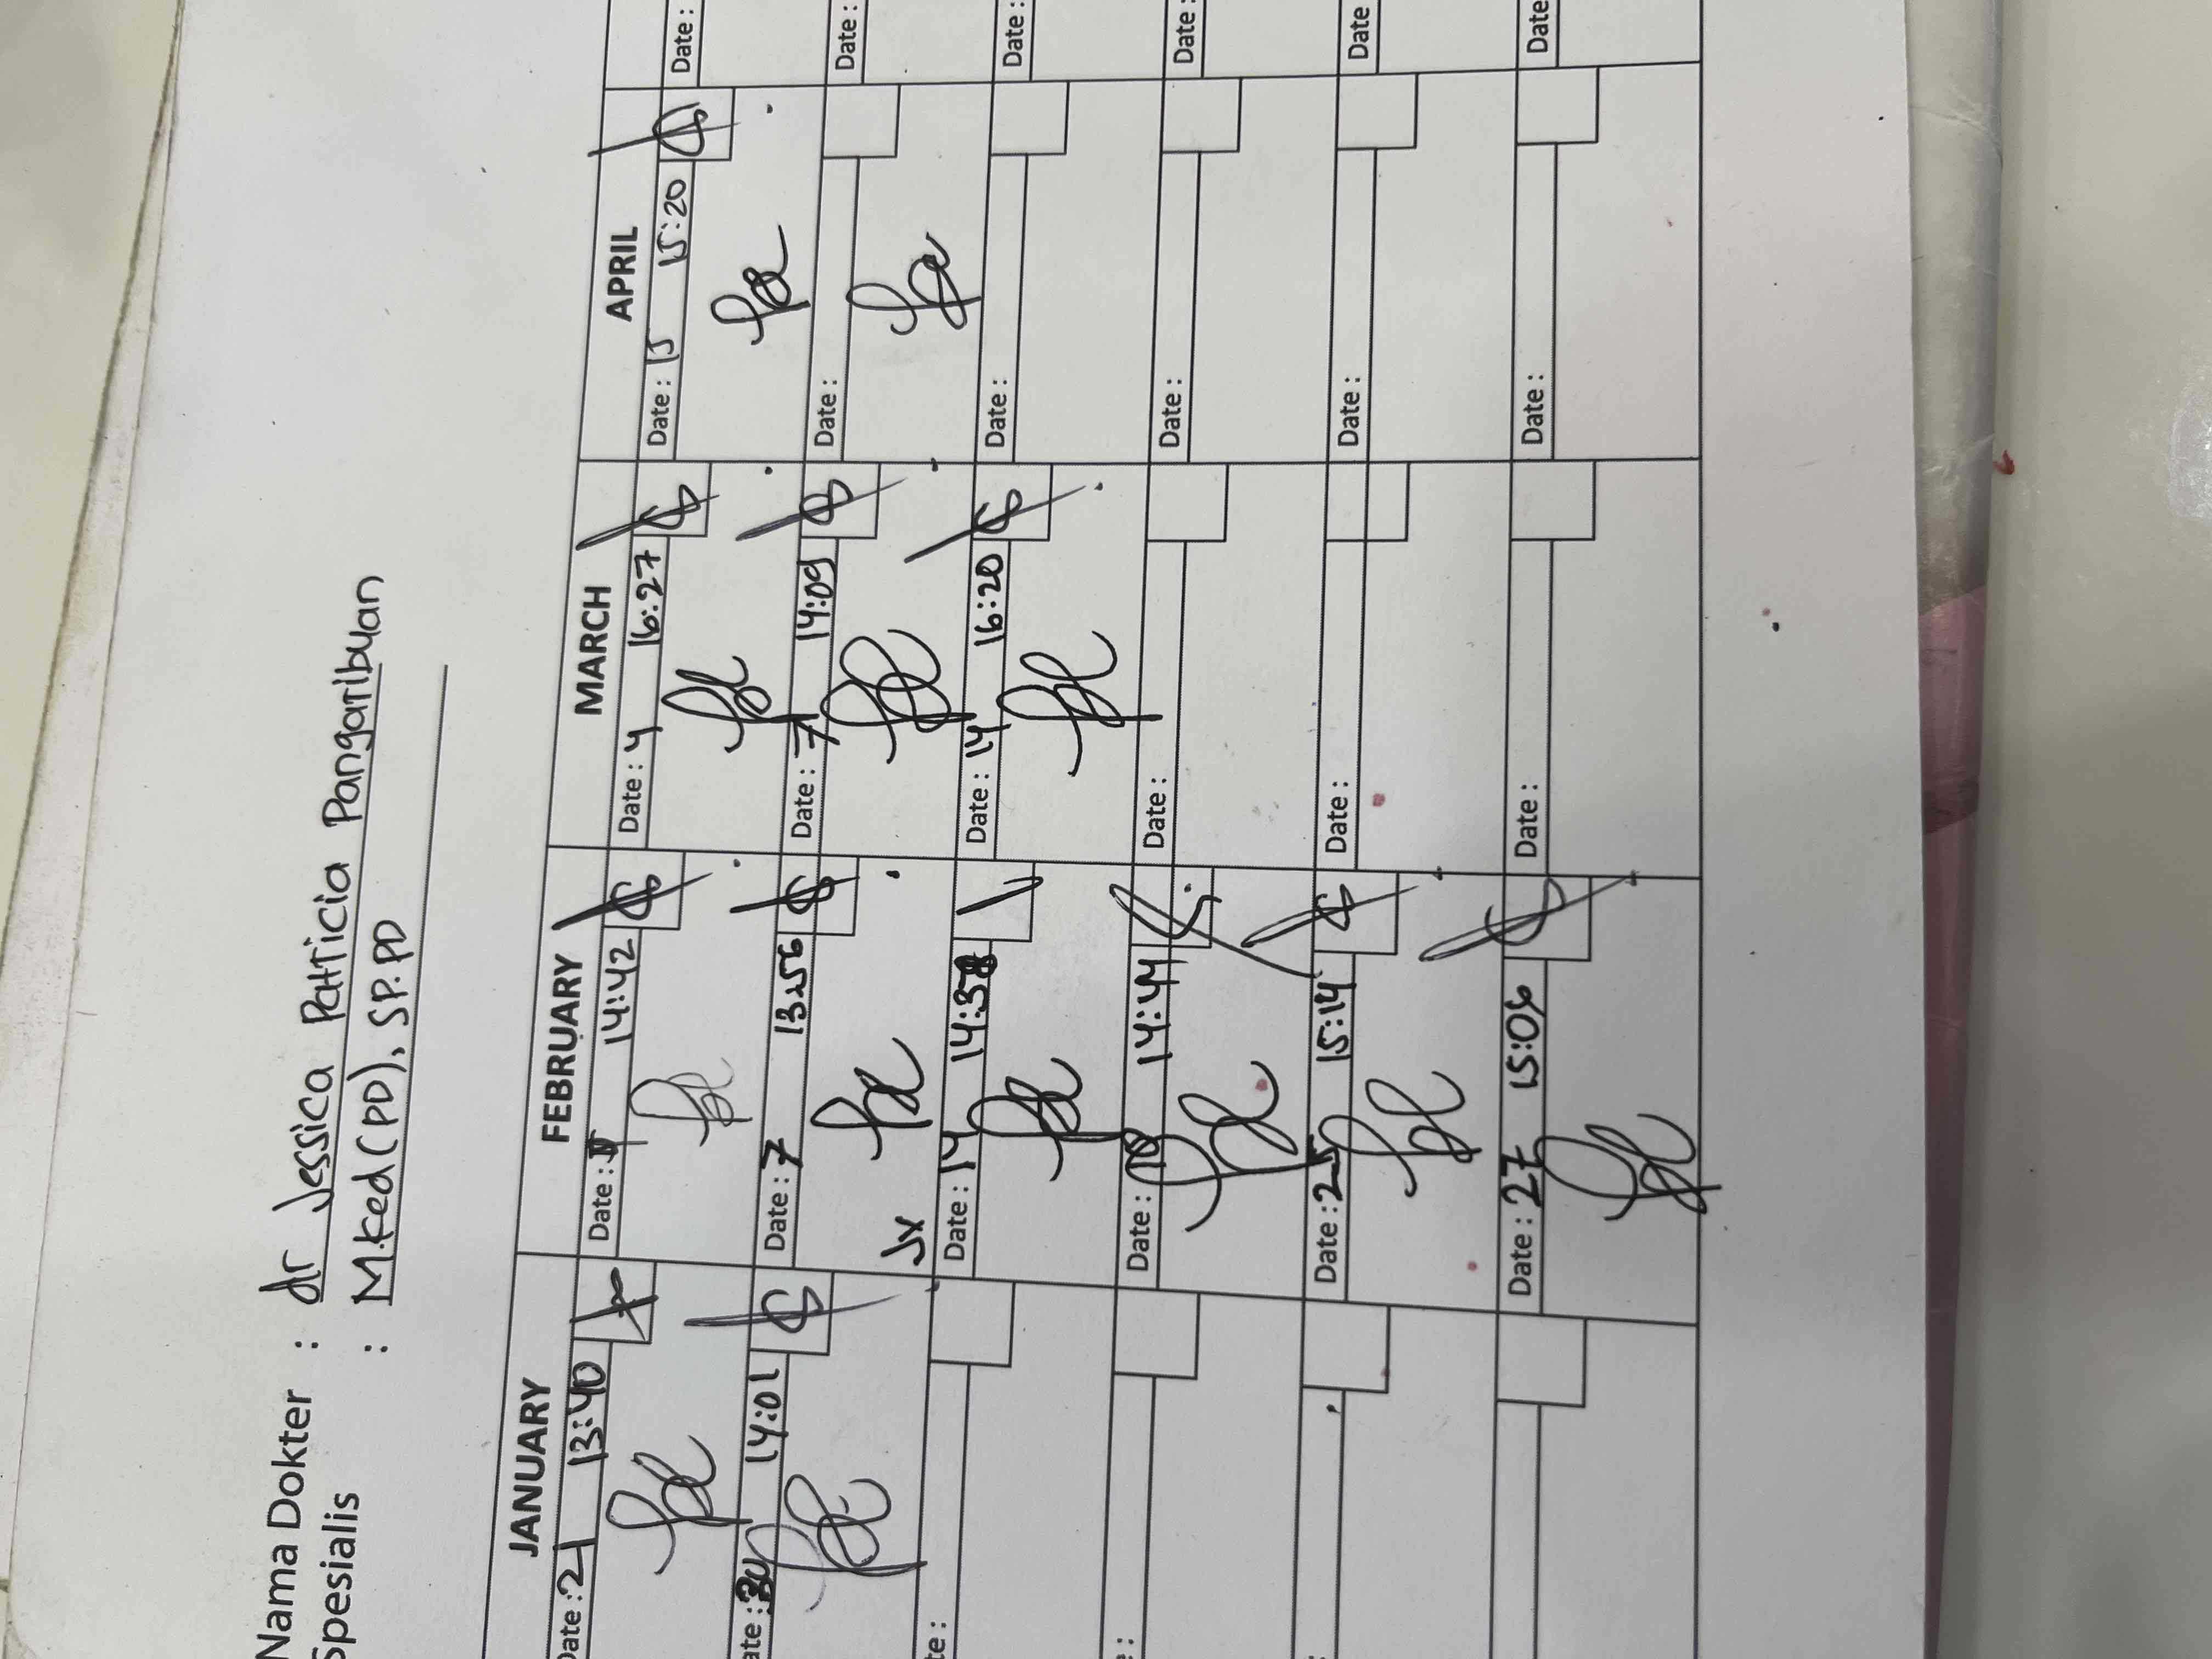 Nama Dokter : dr Jessica Patricia Pangaribuan
Spesialis : M.Ked(PD), SP.PD
JANUARY FEBRUARY MARCH APRIL
Date : 21 13:40 Date : 14:42 Date : 4 16:27 Date : 15 15:20 Date :
ate : 30 14:01 Date : 7 13:56 Date : 7 14:09 Date : Date :
Jx
te : Date : 14 14:38 Date : 14 16:20 Date : Date :
: Date : 14:44 Date : Date : Date :
Date : 25 15:14 Date : Date : Date
Date : 27 15:06 Date : Date : Date